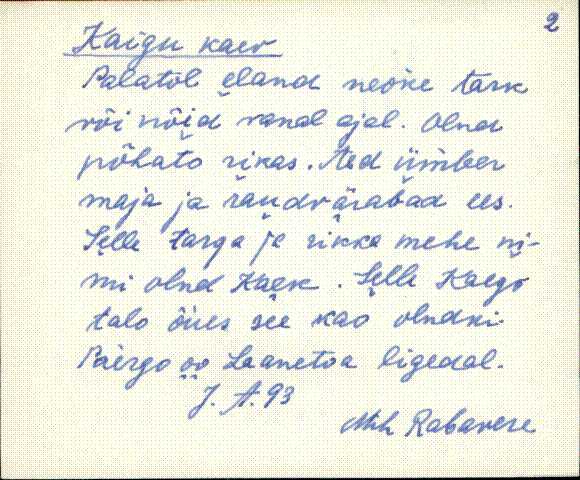 2
Kaigu kaev
Palatol eland neoke tark
või nõid vanal ajal. Olnd
põhato rikas. Aed ümber
maja ja raudväravad ees.
Selle targa ja rikka mehe ni-
mi olnd Kaek. Selle Kaego
talo õues see kao olndki.
Paergo oo Laanetoa ligedal.
J. A. 93
Mih Rabavere